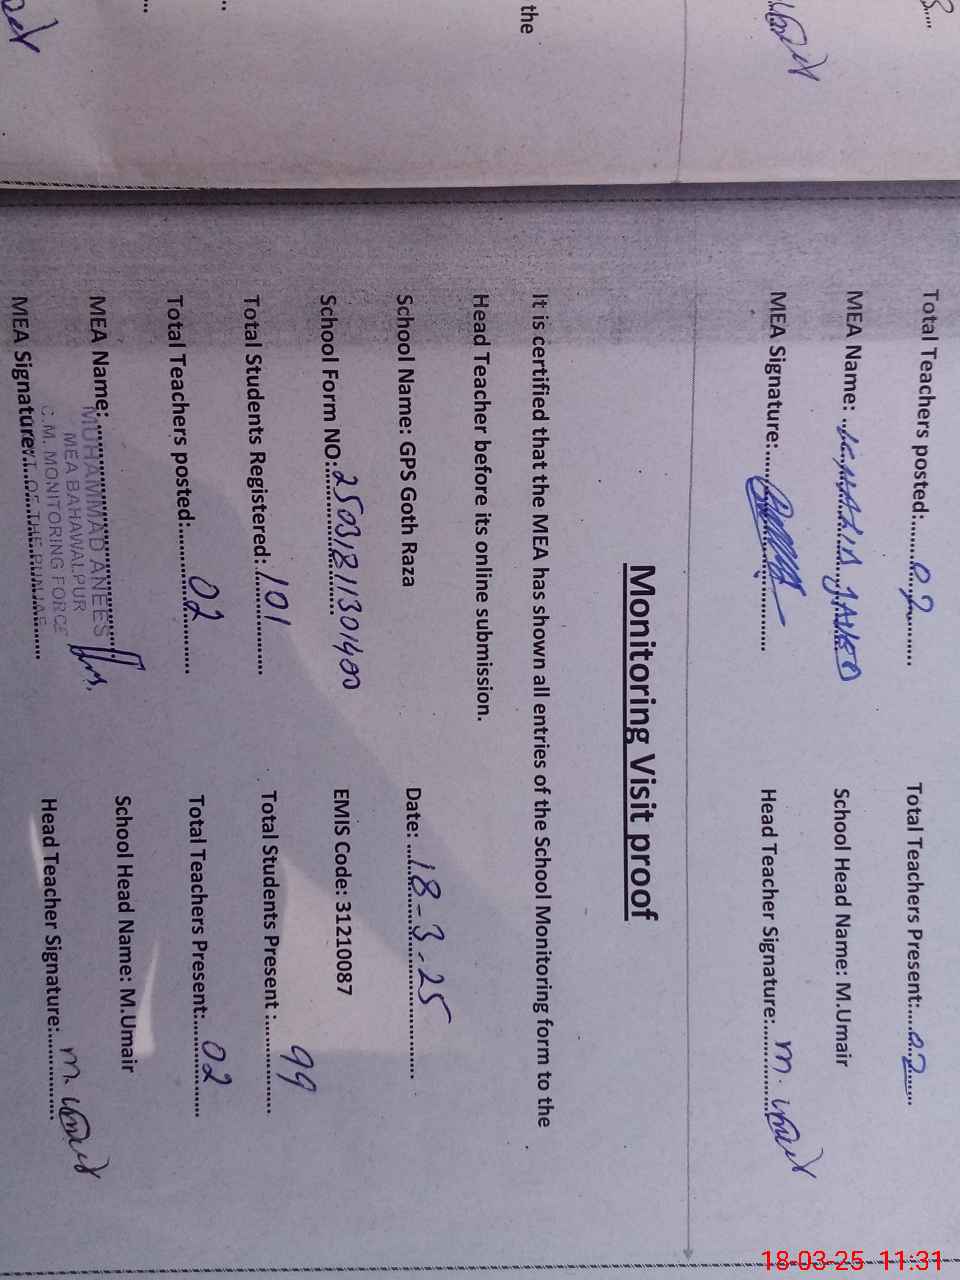 the
Total Teachers posted:..........02.......... Total Teachers Present:....02......
MEA Name: School Head Name: M.Umair
MEA Signature: Head Teacher Signature: M. Umair
Monitoring Visit proof
It is certified that the MEA has shown all entries of the School Monitoring form to the
Head Teacher before its online submission.
School Name: GPS Goth Raza Date: 18-3-25
School Form NO: EMIS Code: 31210087
Total Students Registered: 101 Total Students Present : 99
Total Teachers posted: 02 Total Teachers Present: 02
MEA Name: School Head Name: M.Umair
MUHAMMAD ANEES
MEA BAHAWALPUR
C.M. MONITORING FORCE
OF THE PUNJAB
MEA Signature: Head Teacher Signature: M. Umair
18-03-25 11:31